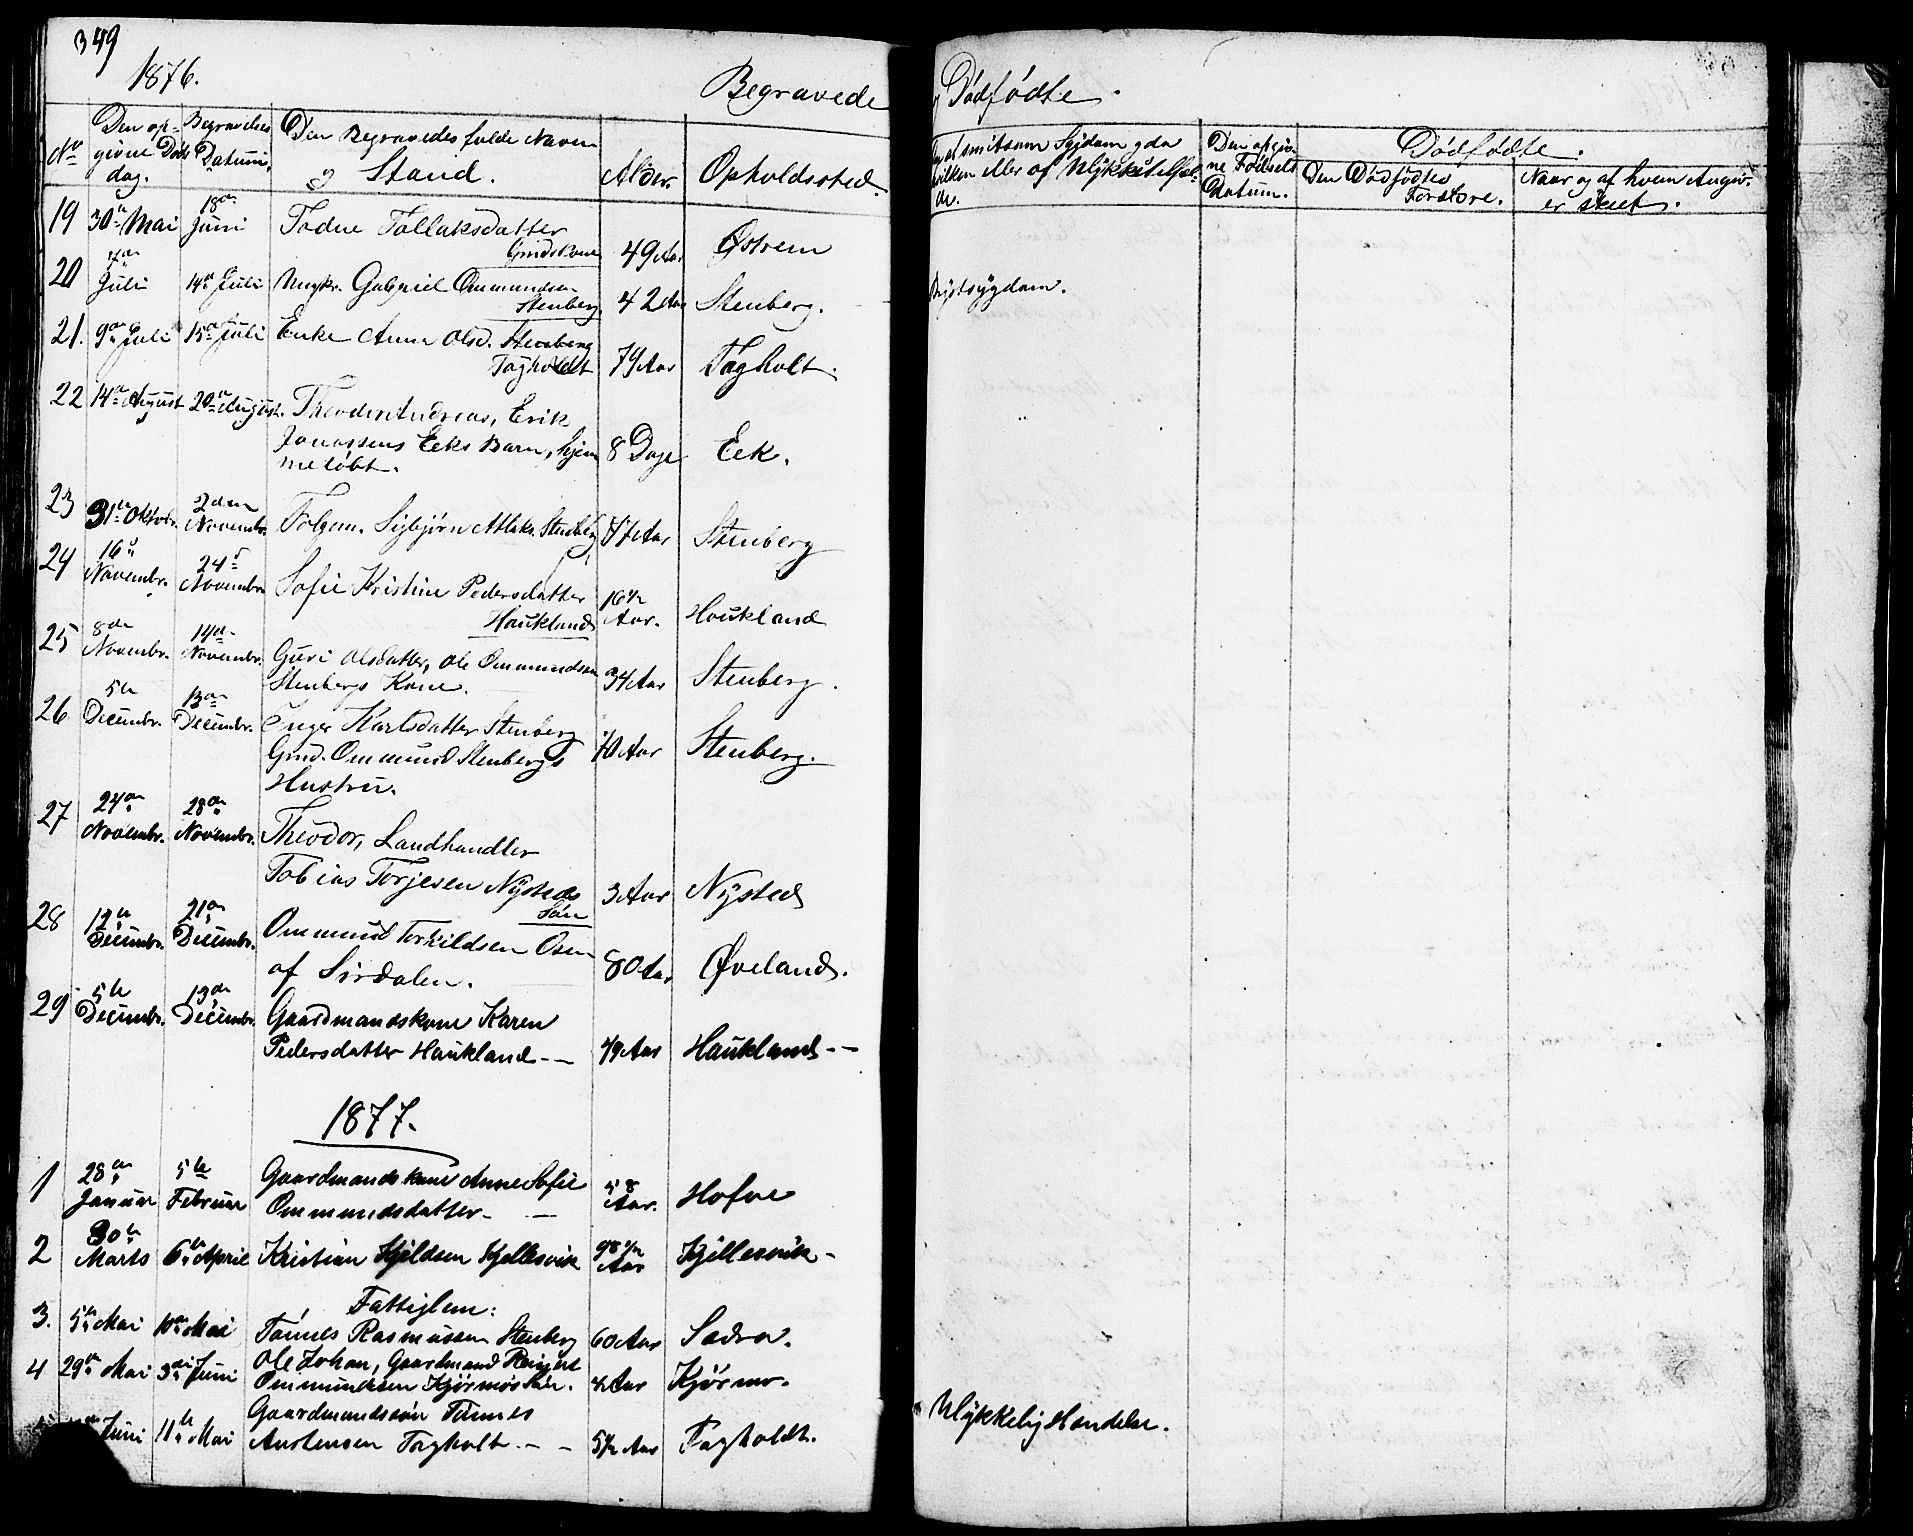 349
1876.
Begravede
Dødfødte.
No
Den op-
givne Døds
dag.
Begravelses
Datum.
Den Begravedes fulde Navn
og Stand.
Alder.
Opholdssted.
smitsom Sygdom
hvilken eller af Ulykkestilfæl-
de.
Den opgiv-
ne Fødsels
Datum.
Dødfødte.
Den Dødfødtes
Forældre.
Naar og af hvem Angiv.
er skeet.
19 30te Mai 18de Juni Todne Tollaksdatter
Grdskone 49 Aar Østrem
20 7de Juli 14de Juli Ungkr. Gabriel Ommundsen
Stenberg 42 Aar Stenberg. Brystsygdom.
21. 9de Juli 15de Juli Enke Anna Olsd. Stenberg
Tagholdt 79 Aar Tagholt.
22 14de August 20de August. Theodor Andreas, Erik
Jonassens Eeks Barn, hjem
medøbt. 8 Dage Eek.
23 31te Oktobr. 2den Novembr. Folgem. Sigbjørn Atlaks. Stenberg 77 Aar Stenberg
24 16de Novembr. 24de Novembr. Sofie Kristine Pedersdatter
Haukland 16 1/2 Aar. Houkland
25 8de Novembr. 14de Novembr. Guri Olsdatter, Ole Ommundsen
Stenbergs Kone. 34 Aar Stenberg.
26 5te Decembr. 13de Decembr. Inger Karlsdatter Stenberg
Grd. Ommund Stenbergs
Hustru. 70 Aar Stenberg.
27 24de Novembr. 28de Novembr. Theodor, Landhandler
Tobias Torjesen Nysteds
Søn 3 Aar Nysted
28 12te Decembr. 21de Decembr. Ommund Terkildsen Osen
af Sirdalen. 80 Aar Øveland.
29 5te Decembr. 13de Decembr. Gaardmandskone Karen
Pedersdatter Haukland - - 49 Aar Haukland - -
1877.
1 28de Januar 5te Februar Gaardmandskone Anne Sofie
Ommundsdatter - - 58 Aar. Hofve
2 30te Marts 6te April Kristian Kjeldsen Kjellesvik 98 1/2 Aar Kjellesvik -
3. 5te Mai 10de Mai Fattiglem:
Tønnes Rasmussen Stenberg 60 Aar Sædra.
4 29de Mai 3die Juni Ole Johan, Gaardmand Reinert
Ommundsen Kjørmos Søn. 4 Aar Kjørmo.
Juni 11te Mai Gaardmandssøn Tønnes
Austensen Tagholt. - - 5 1/2 Aar Tagholdt. Ulykkelig Hændelse.